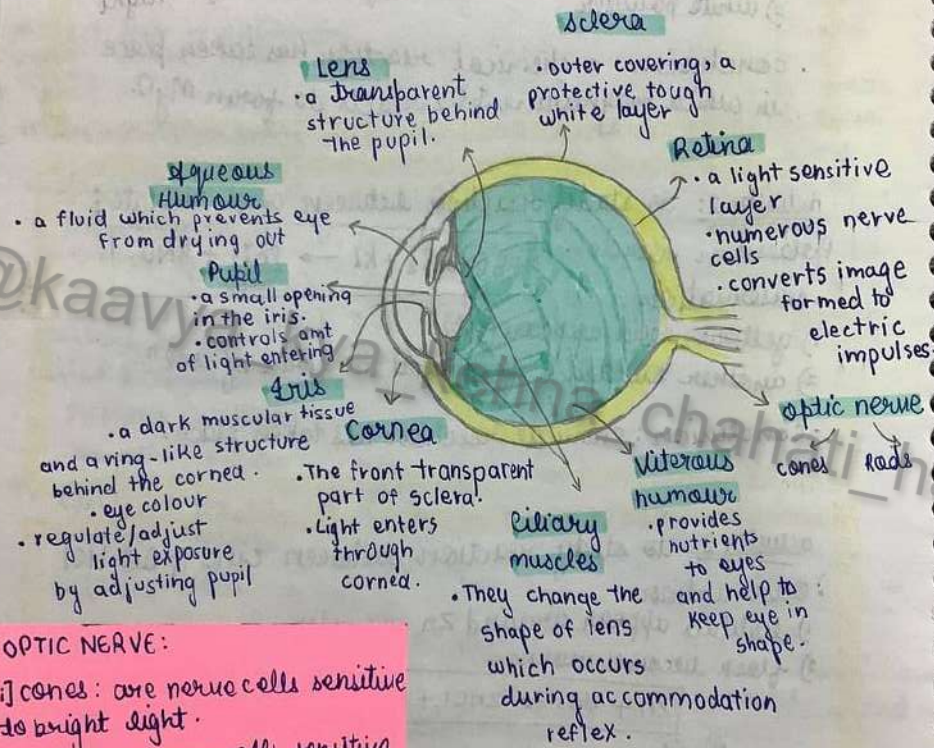 sclera
• outer covering, a
protective tough
white layer
Lens
• a transparent
structure behind
the pupil.
Retina
• a light sensitive
layer
• numerous nerve
cells
• converts image
formed to
electric
impulses
Aqueous
Humour
• a fluid which prevents eye
from drying out
Pupil
• a small opening
in the iris.
• controls amt
of light entering
Iris
• a dark muscular tissue
and a ring-like structure
behind the cornea.
• eye colour
• regulate/adjust
light exposure
by adjusting pupil
Cornea
• The front transparent
part of sclera.
• Light enters
through
cornea.
Ciliary
muscles
• They change the
shape of lens
which occurs
during accommodation
reflex.
Viterous
humour
• provides
nutrients
to eyes
and help to
keep eye in
shape.
optic nerve
cones Rods
OPTIC NERVE:
i] cones: are nerve cells sensitive
to bright light.
sensitive